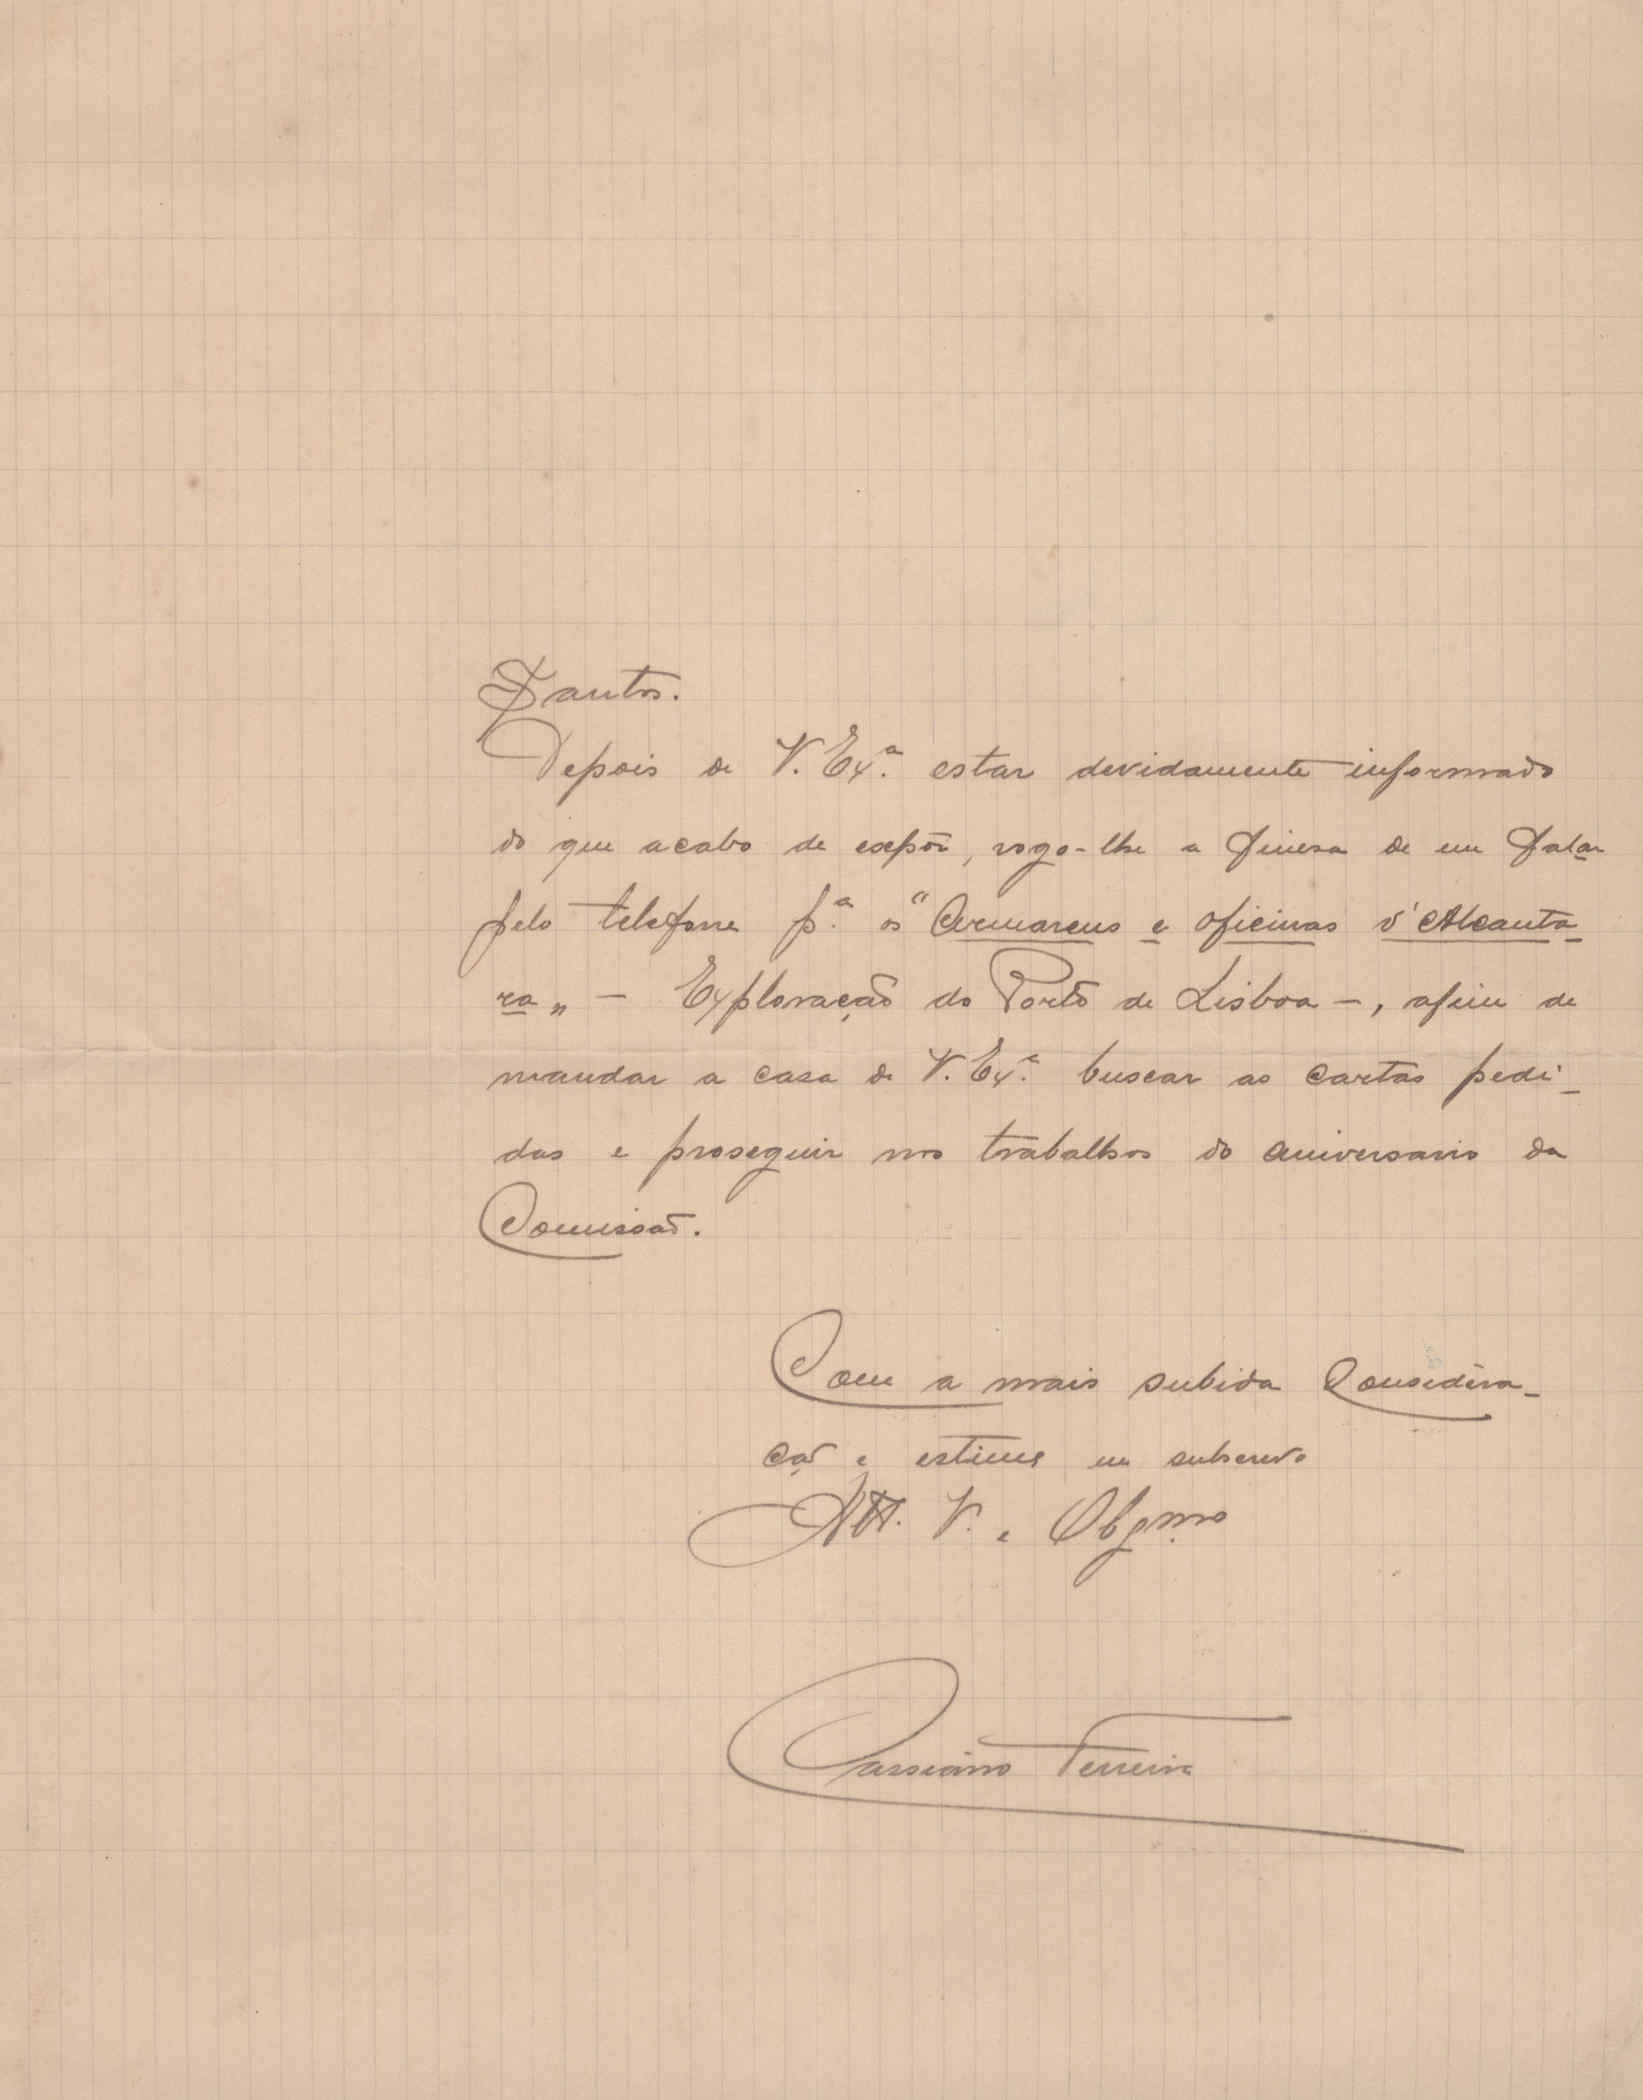 Santos.
Depois de V. Exª. estar devidamente informado
do que acabo de expôr, rogo-lhe a finesa de me falar
pelo telefone pª. os "Armazens e oficinas d'Alcanta-
ra" – Exploração do Porto de Lisboa –, afim de
mandar a casa de V. Exª. buscar as cartas pedi-
das e proseguir nos trabalhos do aniversario da
Comissão.
Com a mais subida Considera-
ção e estima me subscrevo
Att. V. e Obgmo
Cassiano Ferreira